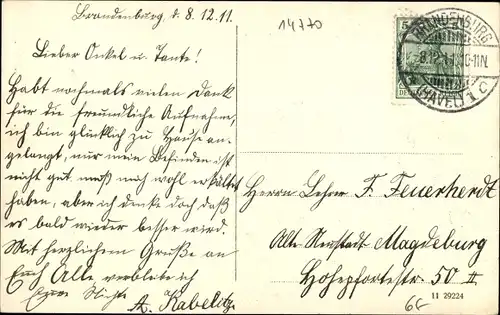 Brandenburg d. 8.12.11.
14770
Lieber Onkel u. Tante!
Habt nochmals vielen Dank
für die freundliche Aufnahme,
ich bin glücklich zu Hause an-
gelangt, nur mein Befinden ist
nicht gut, muß mich wohl erkältet
haben, aber ich denke doch daß
es bald wieder besser wird.
Mit herzlichem Gruße an
Euch Alle verbleibe ich
Eure Nichte
A. Kabelitz
BRANDENBURG
8.12.11. 10-11N.
* (HAVEL) 1 C
Herrn Lehrer F. Feuerherdt
Alte Neustadt Magdeburg
Hohepfortestr. 50 II
11 29224